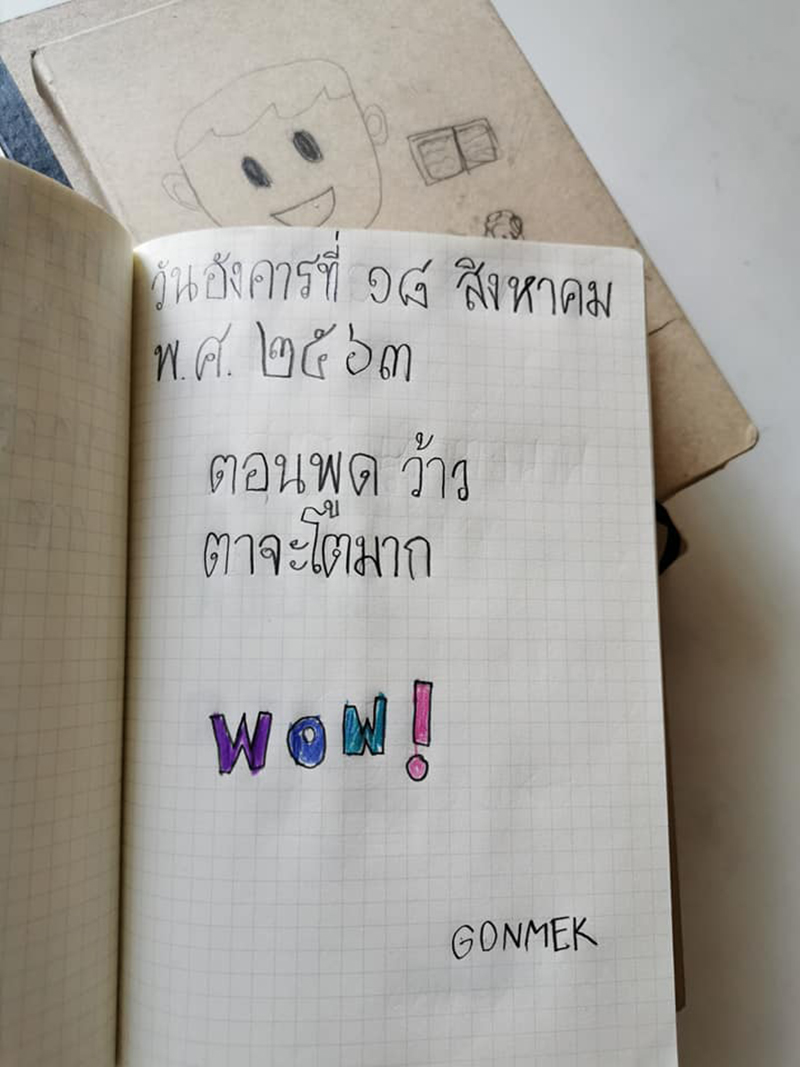 วันอังคารที่ ๑๘ สิงหาคม
พ.ศ. ๒๕๖๓
ตอนพูด ว้าว
ตาจะโตมาก
WOW!
GONMEK